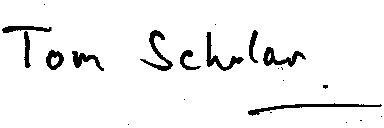 Tom Scholar